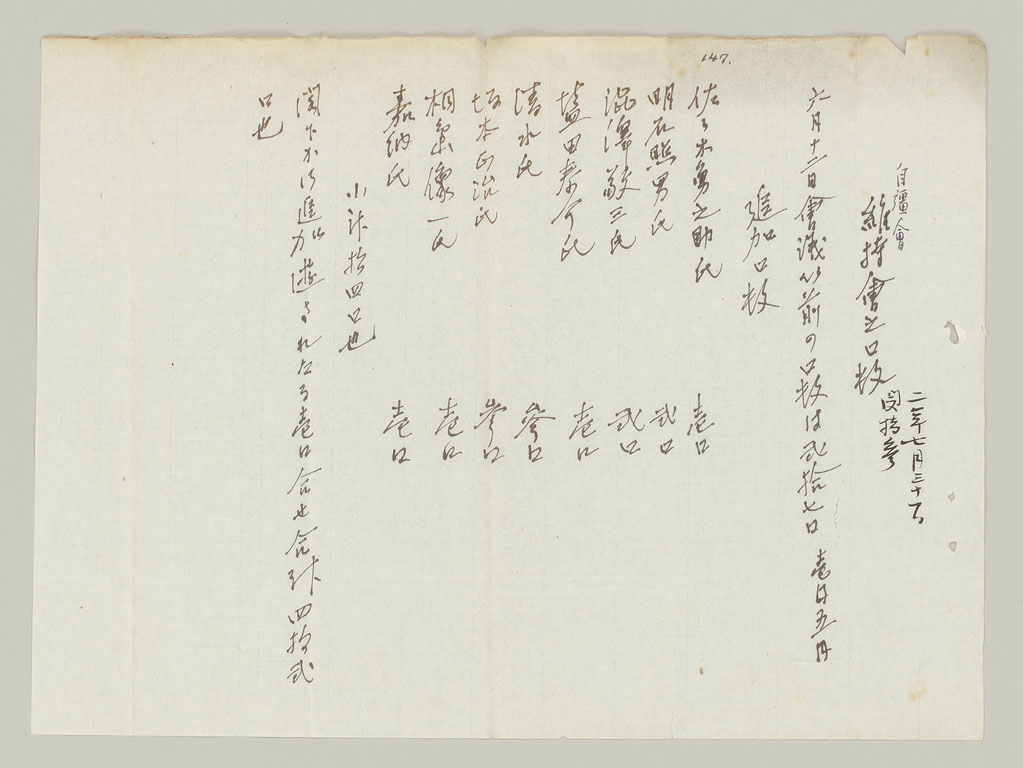 147.
自彊會
維持會之口数
二年七月三十日
関持参
六月十二日會議以前の口数は弐拾七口 壱口五円
追加口数
佐々木勇之助氏 壱口
明石照男氏 弐口
渋澤敬三氏 弐口
塩田泰介氏 壱口
清水氏 参口
坂本正治氏 参口
相島勘一氏 壱口
嘉納氏 壱口
小計拾四口也
閣下が御進力遊されたる壱口合せ合計四拾弐
口也